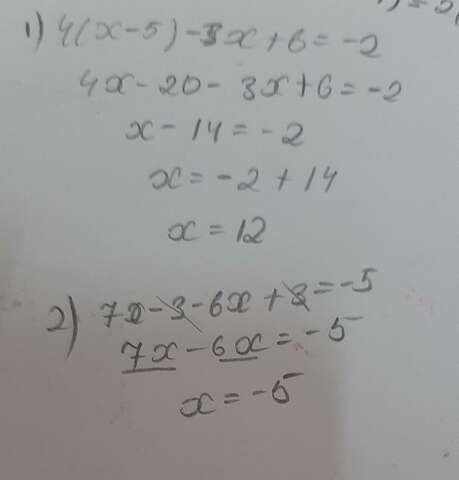 1) 4(x-5)-3x+6=-2
4x-20-3x+6=-2
x-14=-2
x=-2+14
x=12
2) 7x-3-6x+3=-5
7x-6x=-5
x=-5